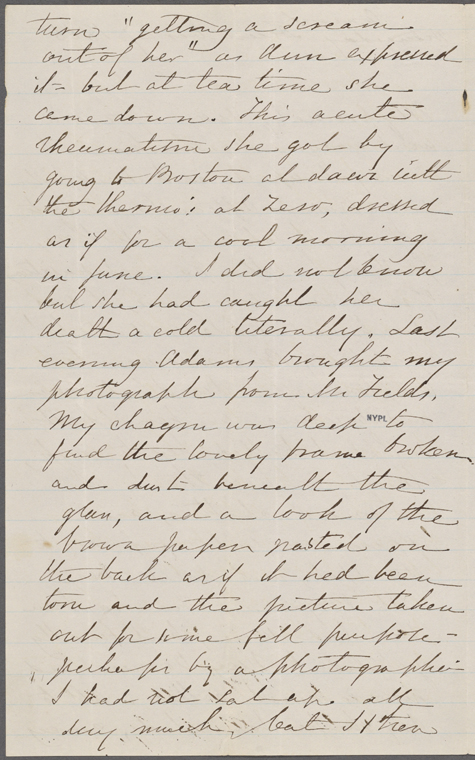 turn "getting a scream
out of her" as Una expressed
it - but at tea time she
came down. This acute
rheumatism she got by
going to Boston at dawn with
the thermo: at Zero, dressed
as if for a cool morning
in June. I did not know
but she had caught her
death a cold literally. Last
evening Adams brought my
photograph from Mr Fields.
My chagrin was deep to
NYPL
find the lovely frame broken
and dust beneath the
glass, and a look of the
brown paper pasted on
the back as if it had been
torn and the picture taken
out for some fell purpose -
perhaps by a photographer
I had not sat up all
day much, but I